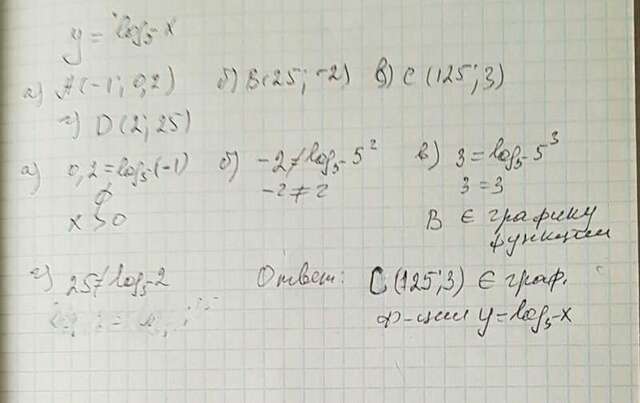 y = log₅ x
а) A(-1; 0,2) б) B(25; -2) в) C(125; 3)
г) D(2; 25)
а) 0,2 = log₅(-1) б) -2 ≠ log₅ 5² в) 3 = log₅ 5³
∅ -2 ≠ 2 3 = 3
x > 0 В ∈ графику
функции
г) 25 ≠ log₅ 2 Ответ: C(125; 3) ∈ граф.
ф-ции y = log₅ x